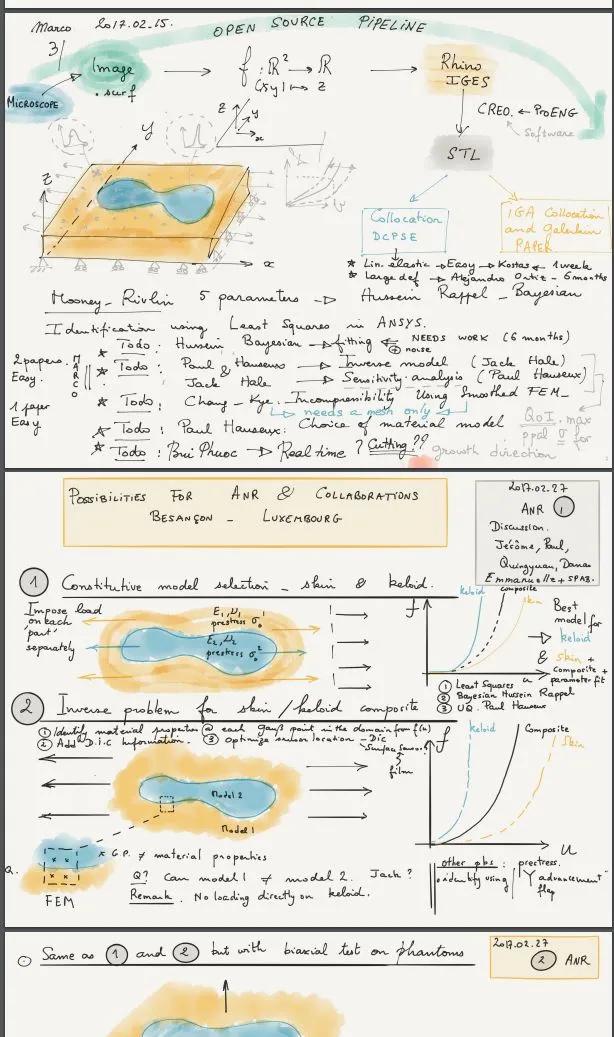 Marco 2017.02.15.
OPEN SOURCE PIPELINE
3)
Image
. surf
MICROSCOPE
f : R² → R
(x,y) → z
Rhino
IGES
CREO. ← ProENG
Software
STL
z y x
y
z
x
Collocation
DCPSE
IGA Collocation
and galerkin
PAPER
* Lin. elastic → Easy → Kostas ← 1 week
* Large def → Alejandro Ortiz - 6 months
Mooney - Rivlin 5 parameters → Hussein Rappel - Bayesian
Identification using Least Squares in ANSYS.
* Todo : Hussein Bayesian → fitting ⇐ NEEDS WORK (6 months)
⊕ noise
2 papers.
Easy.
MARCO
* Todo : Paul Hauseux → Inverse model (Jack Hale)
& Jack Hale → Sensitivity analysis (Paul Hauseux)
1 paper
Easy
* Todo : Chang - Kye. Incompressibility Using Smoothed FEM_
needs a mesh only
* Todo : Paul Hauseux : Choice of material model
QoI. max
ppal σ for
* Todo : Bui Phuoc → Real time ? Cutting ??
growth direction
POSSIBILITIES FOR ANR & COLLABORATIONS
BESANÇON - LUXEMBOURG
2017.02.27
ANR 1
Discussion.
Jérôme, Paul,
Emmanuelle + SPAB.
1 Constitutive model selection _ skin & keloid.
Impose load
on each
"part"
separately
E₁, ν₁
prestress σ₀¹
E₂, ν₂
prestress σ₀²
f
keloid
composite
skin
u
Best
model for
→ keloid
& skin +
composite +
parameter fit
① Least Squares
② Bayesian Hussein Rappel
③ UQ. Paul Hauseux
2 Inverse problem for skin / keloid composite
① Identify material properties @ each gauß point in the domain from f(u)
② Add D.I.C Information. ③ Optimize sensor location - Dic
film
Model 2
Model 1
f
keloid
Composite
Skin
u
* G.P. ≠ material properties
Q.
FEM
Q? Can model 1 ≠ model 2. Jack ?
Remark. No loading directly on keloid.
other pbs : prestress.
identify using "Y advancement"
flap
⊙ Same as 1 and 2 but with biaxial test on phantoms
2017.02.27
2 ANR